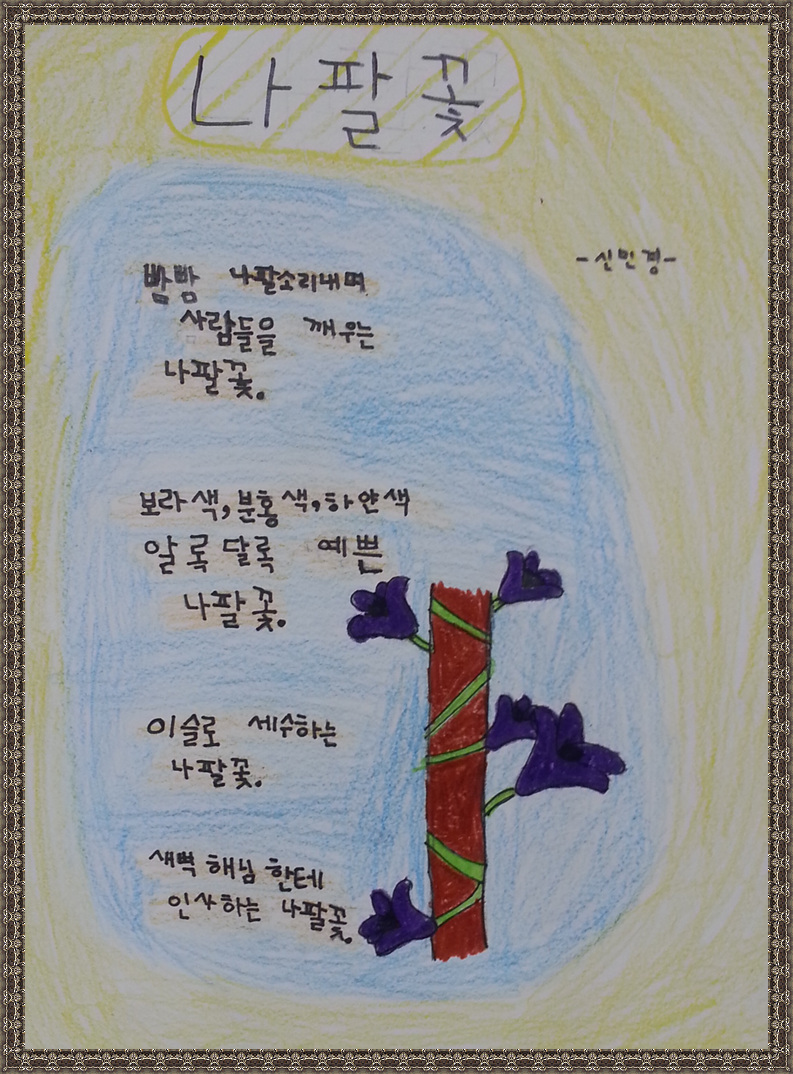 나팔꽃
-신민경-
빰빰 나팔소리내며
사람들을 깨우는
나팔꽃.
보라색, 분홍색, 하얀색
알록달록 예쁜
나팔꽃.
이슬로 세수하는
나팔꽃.
새벽 해님 한테
인사하는 나팔꽃.